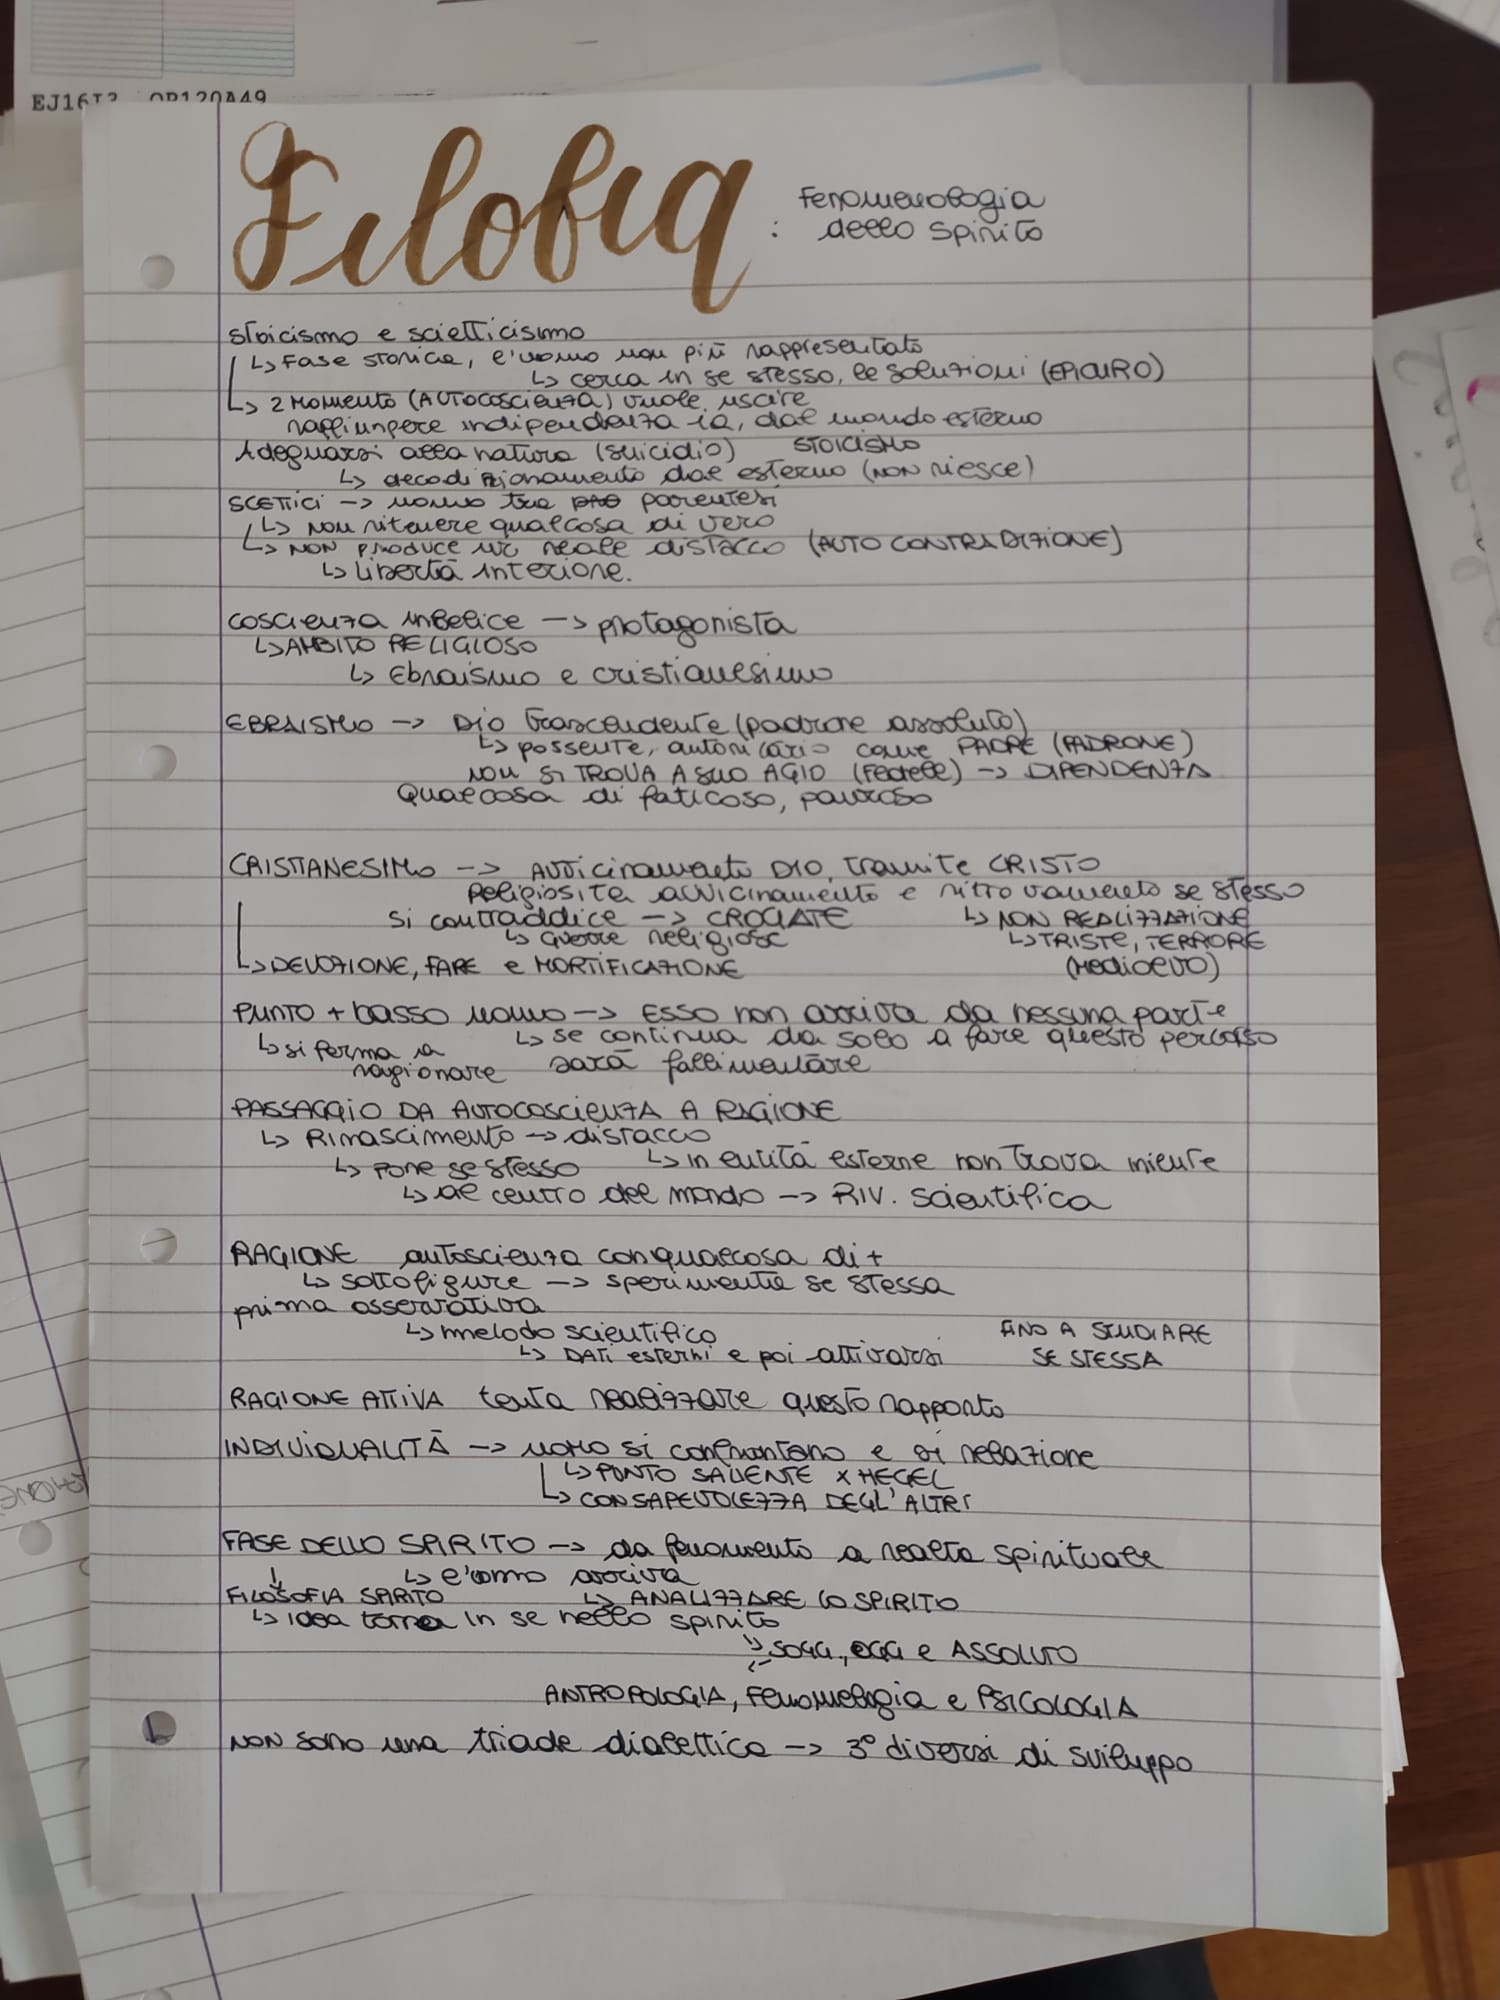 EJ16I3 OP120A49
Filofiq : Fenomenologia
dello spirito
stoicismo e scietticismo
↳ Fase storica, l'uomo non più rappresentato
↳ cerca in se stesso, le soluzioni (EPICURO)
↳ 2 Momento (AUTOCOSCIENZA) vuole uscire
raffiungere indipendenza ia, dal mondo esterno
Adeguarsi alla natura (suicidio) STOICISMO
↳ decodizionamento dal esterno (NON riesce)
SCETTICI -> uomo tra parentesi
↳ non ritenere qualcosa di vero
↳ NON produce un reale distacco (AUTO CONTRADIZIONE)
↳ Libertà interiore.
COSCIENZA infelice -> protagonista
↳ AMBITO RELIGIOSO
↳ Ebraismo e cristianesimo
EBRAISMO -> DIO trascendente (padrone assoluto)
↳ possente, autoritario come PADRE (PADRONE)
NON SI TROVA A SUO AGIO (Fedele) -> DIPENDENZA
Qualcosa di faticoso, pauroso
CRISTIANESIMO -> Avvicinamento DIO, tramite CRISTO
Religiosità avvicinamento e ritrovamento se stesso
si contraddice -> CROCIATE ↳ NON REALIZZAZIONE
↳ Guerre religiose ↳ TRISTE, TERRORE
↳ DEVOZIONE, FARE e MORTIFICAZIONE (Medioevo)
PUNTO + basso uomo -> Esso non arriva da nessuna parte
↳ si ferma a ↳ se continua da solo a fare questo percorso
ragionare sarà fallimentare
PASSAGGIO DA AUTOCOSCIENZA A RAGIONE
↳ Rinascimento -> distacco
↳ PONE se stesso ↳ in entità esterne non trova niente
↳ al centro del mondo -> RIV. scientifica
RAGIONE autoscienza con qualcosa di +
↳ sottofigure -> sperimenta se stessa
prima osservativa
↳ metodo scientifico FINO A STUDIARE
↳ DATI esterni e poi attivarsi SE STESSA
RAGIONE ATTIVA tenta realizzare questo rapporto
INDIVIDUALITÀ -> UOMO si confrontano e di relazione
↳ PUNTO SALIENTE X HEGEL
↳ CONSAPEVOLEZZA DEGL'ALTRI
FASE DELLO SPIRITO -> da fenomento a realta spirituale
↳ l'uomo arriva
FILOSOFIA SPIRITO ↳ ANALIZZARE LO SPIRITO
↳ idea torna in se nello spirito
↳ SOGG., OGG e ASSOLUTO
ANTROPOLOGIA, Fenomelogia e PSICOLOGIA
NON sono una triade dialettica -> 3° diversi di sviluppo